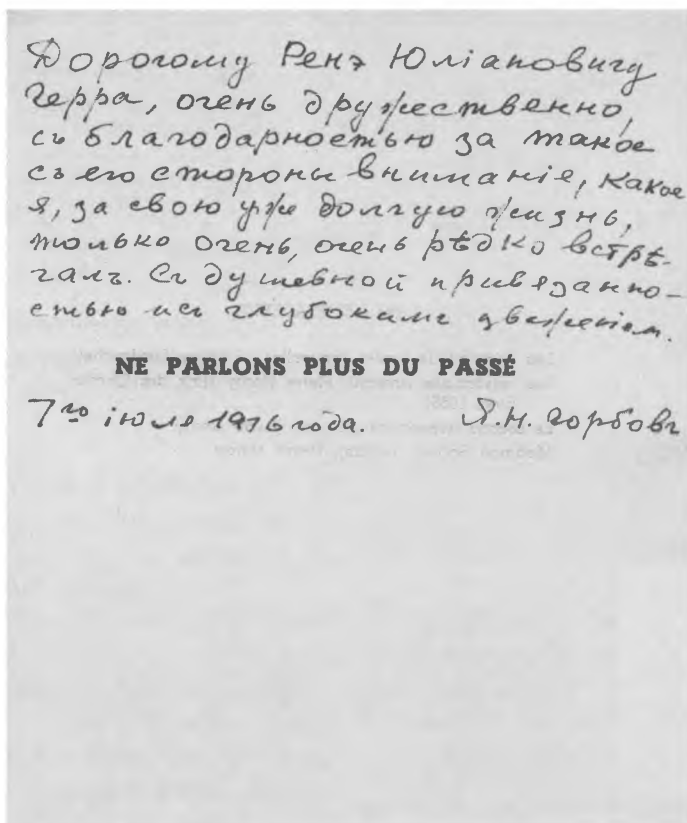 Дорогому Ренэ Юліановичу
Герра, очень дружественно,
съ благодарностью за такое
съ его стороны вниманіе, какое
я, за свою уже долгую жизнь,
только очень, очень рѣдко встрѣ-
чалъ. Съ душевной привязанно-
стью и съ глубокимъ уваженіем.
NE PARLONS PLUS DU PASSÉ
7го іюля 1976 года. Я.Н. Горбовъ